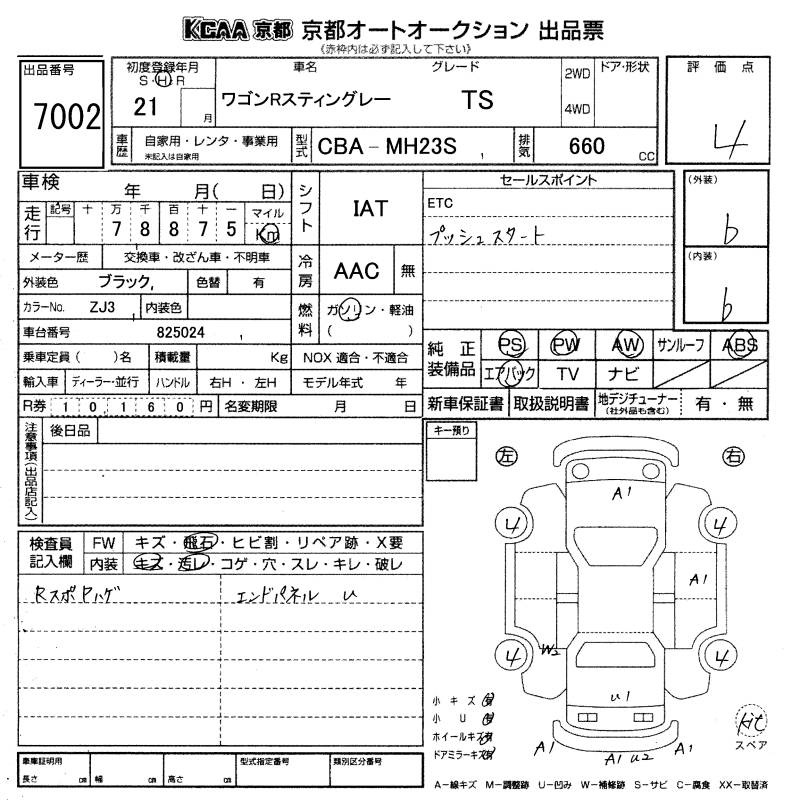 KCAA 京都 京都オートオークション 出品票
《赤枠内は必ず記入して下さい》
出品番号
7002
初度登録年月
S・H・R
21 月
車名
グレード
ワゴンRスティングレー TS
2WD
4WD
ドア・形状
評価点
4
車歴
自家用・レンタ・事業用
未記入は自家用
型式
CBA－MH23S
排気
660 CC
車検 年 月( 日)
走行
記号 十 万 千 百 十 一 マイル
7 8 8 7 5 Km
メーター歴 交換車・改ざん車・不明車
外装色 ブラック, 色替 有
カラーNo. ZJ3 内装色
車台番号 825024
乗車定員( )名 積載量 Kg NOX 適合・不適合
輸入車 ディーラー・並行 ハンドル 右H・左H モデル年式 年
R券 10,160円 名変期限 月 日
シフト
IAT
冷房
AAC 無
燃料
ガソリン・軽油
( )
セールスポイント
ETC
プッシュスタート
(外装)
b
(内装)
b
純正装備品
PS PW AW サンルーフ ABS
エアバック TV ナビ
新車保証書 取扱説明書 地デジチューナー
(社外品も含む)
有・無
注意事項(出品店記入)
後日品
キー預り
検査員記入欄
FW キズ・飛石・ヒビ割・リペア跡・X要
内装 キズ・汚レ・コゲ・穴・スレ・キレ・破レ
RスポPハゲ エンドパネル U
左 右
A1
4 4
A1
4 W2 4
U1
小キズ有
小U有
ホイールキズ有
ドアミラーキズ有
A1 A1 U2 A1
kit
スペア
車庫証明用
長さ cm 幅 cm 高さ cm
型式指定番号
類別区分番号
A−線キズ M−調整跡 U−凹み W−補修跡 S−サビ C−腐食 XX−取替済